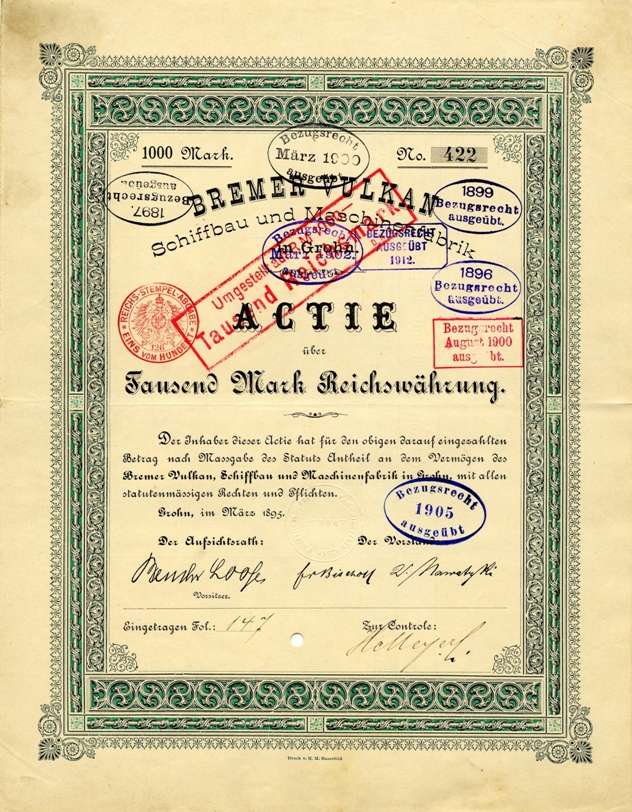 Bezugsrecht
März 1900
ausgeübt.
1000 Mark.
No. 422
Bezugsrecht
ausgeübt
1897.
BREMER VULKAN
1899
Bezugsrecht
ausgeübt.
Schiffbau und Maschinenfabrik
in Grohn.
Bezugsrecht
März 1902.
ausgeübt.
BEZUGSRECHT
AUSGEÜBT
1912.
Umgestellt auf
Tausend Reichsmark
1896
Bezugsrecht
ausgeübt.
REICHS-STEMPEL-ABGABE
EINS VOM HUNDERT
126
ACTIE
Bezugsrecht
August 1900
ausgeübt.
über
Tausend Mark Reichswährung.
Der Inhaber dieser Actie hat für den obigen darauf eingezahlten
Betrag nach Massgabe des Statuts Antheil an dem Vermögen des
Bremer Vulkan, Schiffbau und Maschinenfabrik in Grohn, mit allen
statutenmässigen Rechten und Pflichten.
Grohn, im März 1895.
Bezugsrecht
1905
ausgeübt
Der Aufsichtsrath:
Der Vorstand:
Fr Bischoff V. Nawatzki
Vorsitzer.
Eingetragen Fol.: 147
Zur Controle:
Druck v. H. M. Hauschild